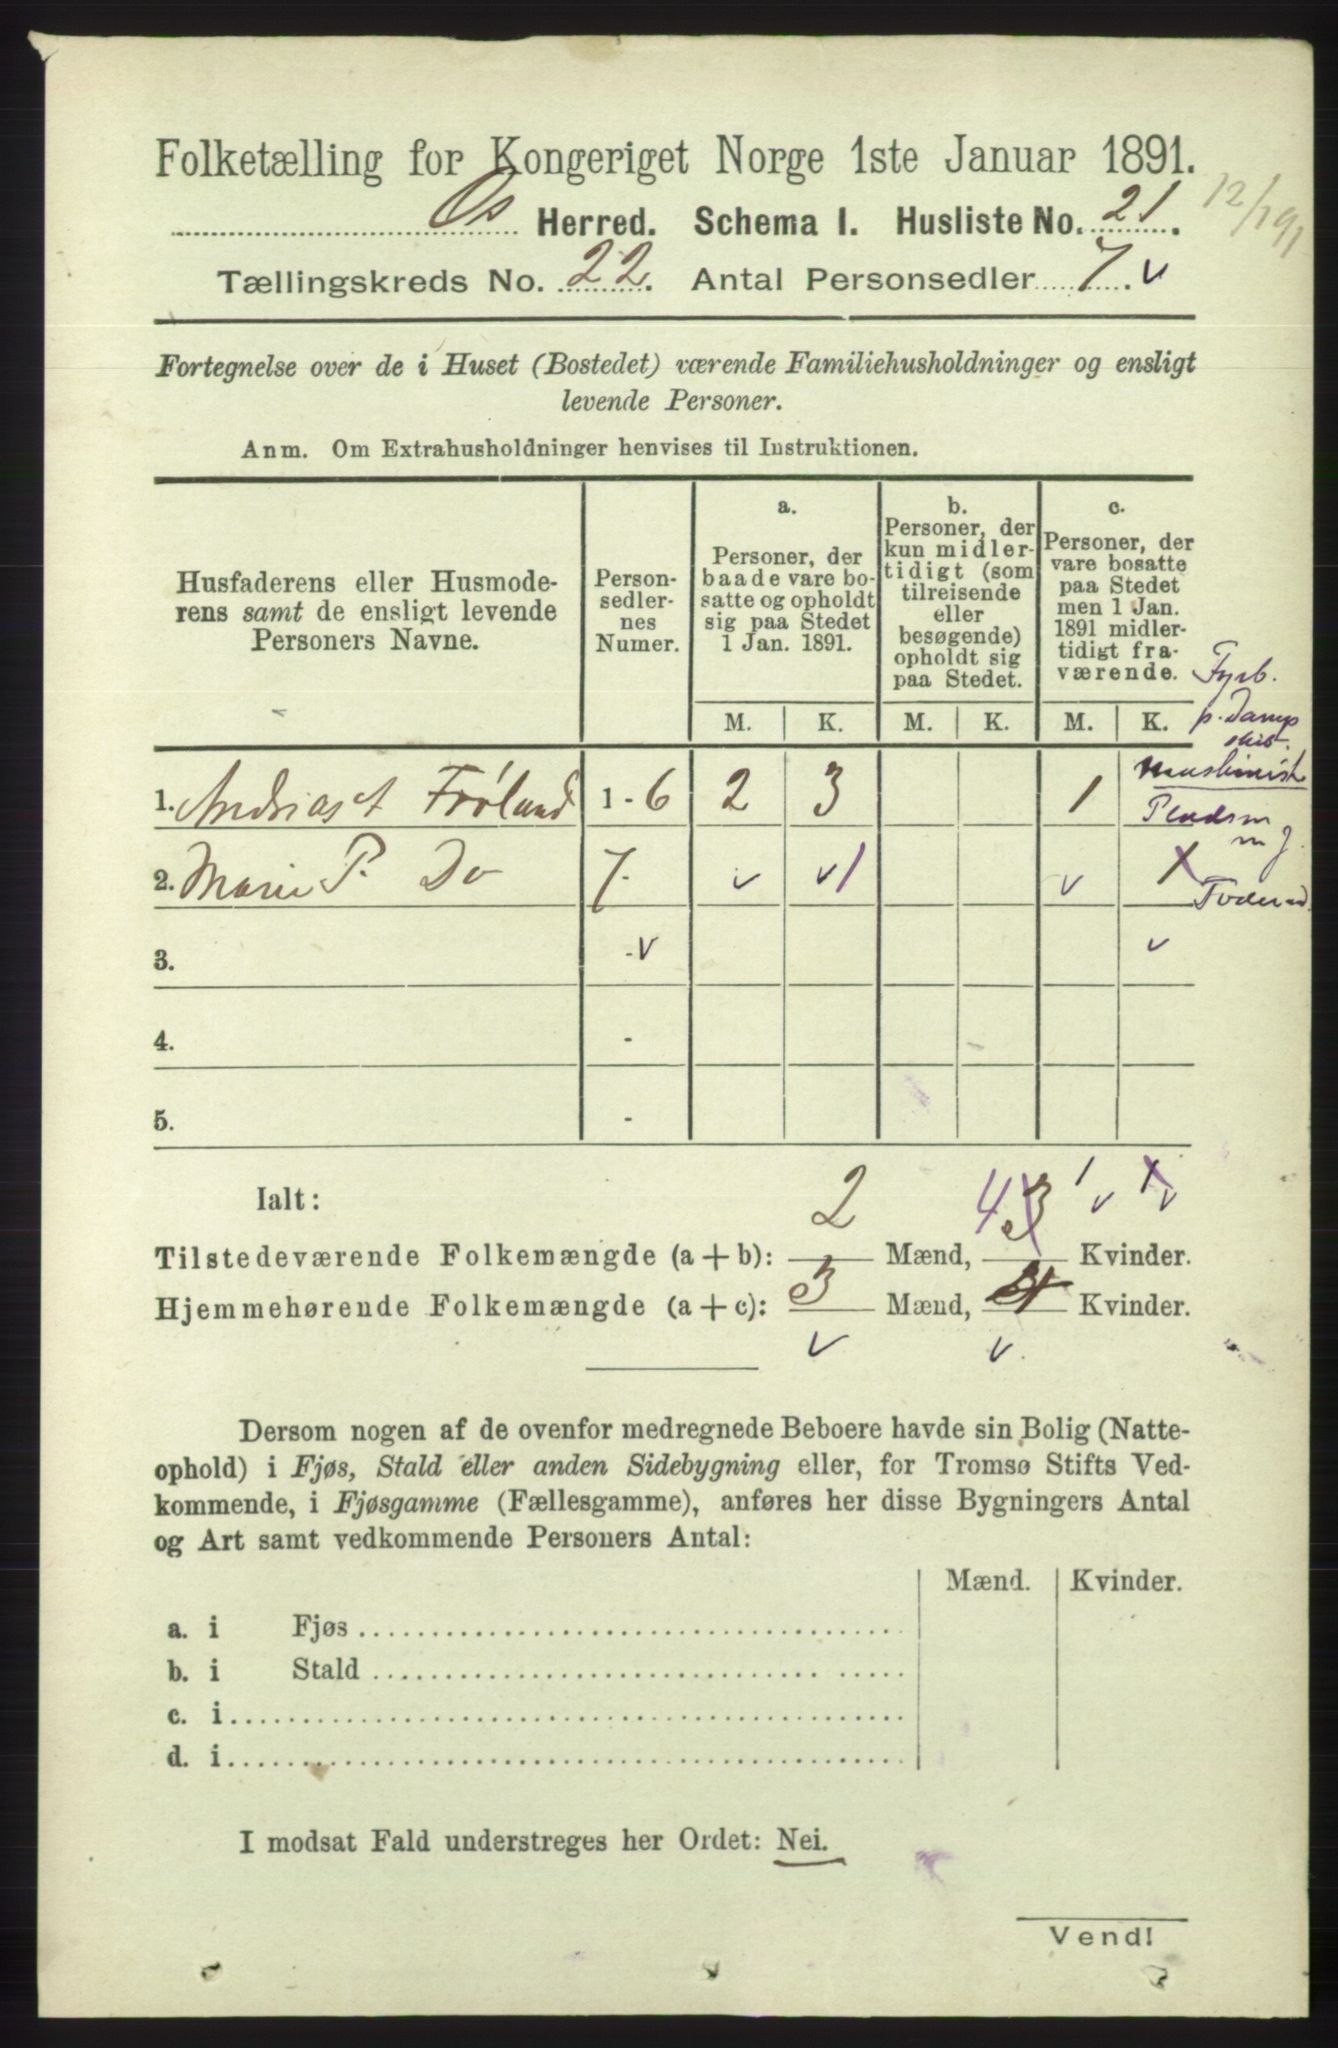 Folketælling for Kongeriget Norge 1ste Januar 1891.
Os Herred. Schema I. Husliste No. 21.
Tællingskreds No. 22. Antal Personsedler 7. v
Fortegnelse over de i Huset (Bostedet) værende Familiehusholdninger og ensligt
levende Personer.
Anm. Om Extrahusholdninger henvises til Instruktionen.
Husfaderens eller Husmode-
rens samt de ensligt levende
Personers Navne.
Person-
sedler-
nes
Numer.
a.
Personer, der
baade vare bo-
satte og opholdt
sig paa Stedet
1 Jan. 1891.
b.
Personer, der
kun midler-
tidigt (som
tilreisende
eller
besøgende)
opholdt sig
paa Stedet.
c.
Personer, der
vare bosatte
paa Stedet
men 1 Jan.
1891 midler-
tidigt fra-
værende.
Fyrb.
p. Damp
skib.
M. K. M. K. M. K.
1. Andrias A Fröland 1 - 6 2 3 1
2. Marie P. Do 7 - v v 1 v
3. - v v
4. -
5. -
Ialt:
Tilstedeværende Folkemængde (a + b): 2 Mænd, 4 3 Kvinder. 1 v 1 v
Hjemmehørende Folkemængde (a + c): 3 Mænd, Kvinder.
v v.
Dersom nogen af de ovenfor medregnede Beboere havde sin Bolig (Natte-
ophold) i Fjøs, Stald eller anden Sidebygning eller, for Tromsø Stifts Ved-
kommende, i Fjøsgamme (Fællesgamme), anføres her disse Bygningers Antal
og Art samt vedkommende Personers Antal:
Mænd. Kvinder.
a. i Fjøs
b. i Stald
c. i
d. i
I modsat Fald understreges her Ordet: Nei.
Vend!